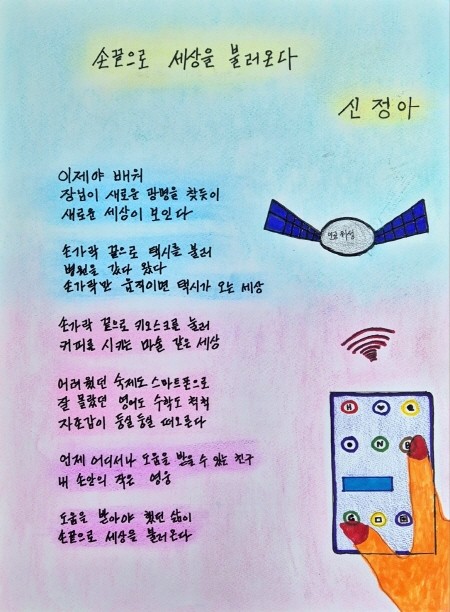 손끝으로 세상을 불러온다
신정아
이제야 배워
장님이 새로운 광명을 찾듯이
새로운 세상이 보인다
손가락 끝으로 택시를 불러
병원을 갔다 왔다
손가락만 움직이면 택시가 오는 세상
손가락 끝으로 키오스크를 눌러
커피를 시키는 마술 같은 세상
어려웠던 숙제도 스마트폰으로
잘 몰랐던 영어도 수학도 척척
자존감이 둥실둥실 떠오른다
언제 어디서나 도움을 받을 수 있는 친구
내 손안의 작은 영웅
도움을 받아야 했던 삶이
손끝으로 세상을 불러온다
인공위성
H
N
G